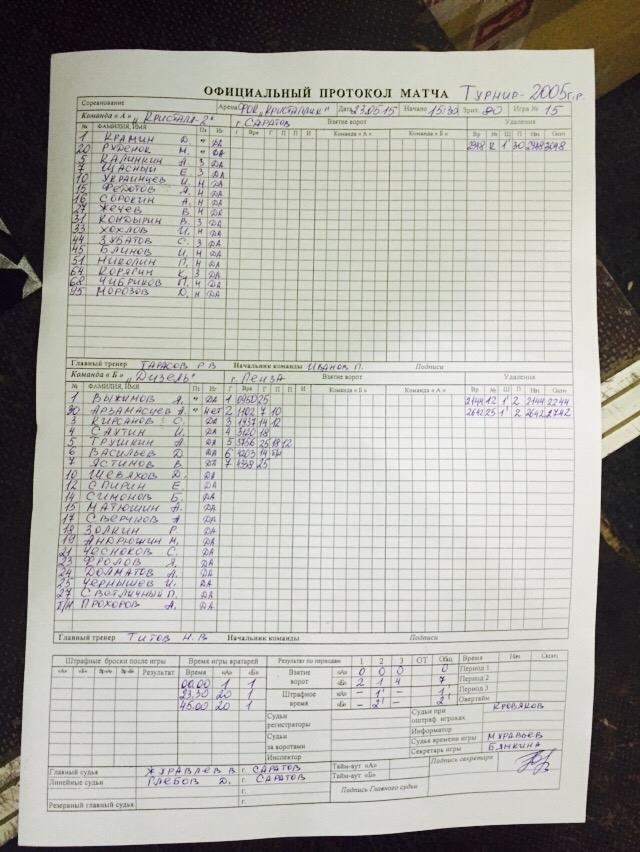 ОФИЦИАЛЬНЫЙ ПРОТОКОЛ МАТЧА Турнир-2005г.р.
Соревнование Арена ФОК „Кристаллик" Дата 23.05.15 Начало 15:30 Зрит. 90 Игра № 15
Команда «А» „Кристалл-2" г. Саратов Взятие ворот Удаления
№ ФАМИЛИЯ, ИМЯ Пз Иг Г Врм Г П П И Команда «А» Команда «Б» Вр № Ш П Нач. Окон
1 Крамин Д. " ДА 2948 1' 30 2948 3048
20 Руденок М. " ДА
5 Калинкин А. 3 ДА
7 Щасный Е. 3 ДА
10 Украинцев И. Н ДА
15 Федотов Я. Н ДА
16 Сорокин А. Н ДА
27 Жечев В. Н ДА
31 Кондырин В. 3 ДА
33 Хохлов И. Н ДА
44 Зубатов С. 3 ДА
45 Блинов И. Н ДА
51 Николин П. Н ДА
64 Корягин К. 3 ДА
68 Чибриков П. Н ДА
95 Морозов Д. Н ДА
Главный тренер Тарасов Р.В Начальник команды Иванов П. Подписи
Команда «Б» „Дизель" г. Пенза Взятие ворот Удаления
№ ФАМИЛИЯ, ИМЯ Пз Иг Г Врм Г П П И Команда «Б» Команда «А» Вр № Ш П Нач. Окон
1 Выжимов Я. " ДА 1 0950 25 2144 12 1' 2 2144 2244
30 Арзамасцев А. " нет 2 1102 7 10 2642 25 1' 2 2642 2742
3 Кирсанов С. ДА 3 1937 14 12
4 Саутин И. ДА 4 3120 18
5 Трушкин А. ДА 5 3756 25 18 12
6 Васильев Д. ДА 6 4203 14 б/н
7 Ястинов В. ДА 7 4358 25
10 Шевяхов Д. ДА
12 Спирин Е. ДА
14 Симонов Б. ДА
15 Матюшин А. ДА
17 Сверчков А ДА
18 Золкин Р. ДА
19 Андрюшин М. ДА
21 Чесноков С. ДА
23 Фролов Я. ДА
24 Долматов А. ДА
25 Чернышев И. ДА
27 Светличный П. ДА
б/н Прохоров А. ДА
Главный тренер Титов Н.В Начальник команды Подписи
Штрафные броски после игры Время игры вратарей Результат по периодам 1 2 3 ОТ Общ Время Нач. Окон.
«А» «Б» Вр«А» Вр«Б» Результат «А» «Б» Взятие ворот «А» 0 0 0 0 Период 1
00.00 1 1 «Б» 2 1 4 7 Период 2
23.30 20 1 Штрафное время «А» – 1' – 1' Период 3
45.00 20 1 «Б» – 2' – 2' Овертайм
Судьи регистраторы Судьи при оштраф. игроках Кровяков
Информатор
Судьи за воротами Судья времени игры Муравьев
Секретарь игры Бянкина
Инспектор Подпись секретаря
Главный судья Журавлев В г. Саратов Тайм-аут «А»
Линейные судьи Глебов Д. г. Саратов Тайм-аут «Б»
г. Подпись Главного судьи
Резервный главный судья г.